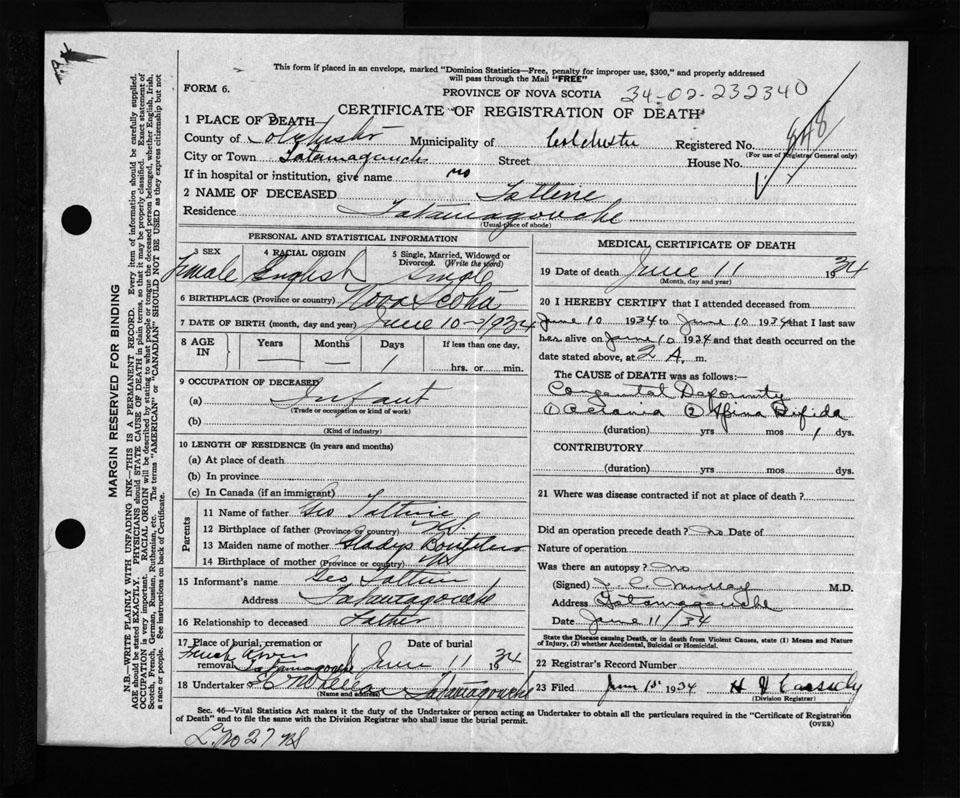 This form if placed in an envelope, marked "Dominion Statistics—Free, penalty for improper use, $300," and properly addressed
will pass through the Mail "FREE"
FORM 6.
PROVINCE OF NOVA SCOTIA 34-02-232340
CERTIFICATE OF REGISTRATION OF DEATH
1 PLACE OF DEATH
County of Colchester Municipality of Colchester Registered No. 848
(For use of Registrar General only)
City or Town Tatamagouche Street House No.
If in hospital or institution, give name no
2 NAME OF DECEASED Tattrie
Residence Tatamagouche
(Usual place of abode)
PERSONAL AND STATISTICAL INFORMATION
3 SEX Female
4 RACIAL ORIGIN English
5 Single, Married, Widowed or Divorced. (Write the word) Single
6 BIRTHPLACE (Province or country) Nova Scotia
7 DATE OF BIRTH (month, day and year) June 10-1934
8 AGE IN Years Months Days If less than one day,
— — 1 hrs. or min.
9 OCCUPATION OF DECEASED
(a) Infant
(Trade or occupation or kind of work)
(b)
(Kind of industry)
10 LENGTH OF RESIDENCE (in years and months)
(a) At place of death
(b) In province
(c) In Canada (if an immigrant)
Parents
11 Name of father Geo Tattrie
12 Birthplace of father (Province or country) NS.
13 Maiden name of mother Gladys
14 Birthplace of mother (Province or country) NS
15 Informant's name Geo Tattrie
Address Tatamagouche
16 Relationship to deceased Father
17 Place of burial, cremation or removal Tatamagouche
Date of burial June 11 1934
18 Undertaker Tatamagouche
(Name and address)
MEDICAL CERTIFICATE OF DEATH
19 Date of death June 11 1934
(Month, day and year)
20 I HEREBY CERTIFY that I attended deceased from
June 10 1934 to June 10 1934 that I last saw
her alive on June 10 1934 and that death occurred on the
date stated above, at 2 A. m.
The CAUSE OF DEATH was as follows:—
Congenital Deformity
① ② Spina Bifida
(duration) yrs mos 1 dys.
CONTRIBUTORY
(duration) yrs mos dys.
21 Where was disease contracted if not at place of death?
Did an operation precede death? no Date of
Nature of operation
Was there an autopsy? no
(Signed) Murray M.D.
Address Tatamagouche
Date June 11/34
State the Disease causing Death, or in death from Violent Causes, state (1) Means and Nature
of Injury, (2) whether Accidental, Suicidal or Homicidal.
22 Registrar's Record Number
23 Filed 1934 Cassidy
(Division Registrar)
Sec. 46—Vital Statistics Act makes it the duty of the Undertaker or person acting as Undertaker to obtain all the particulars required in the "Certificate of Registration
of Death" and to file the same with the Division Registrar who shall issue the burial permit.
(OVER)
MARGIN RESERVED FOR BINDING
N.B.—WRITE PLAINLY WITH UNFADING INK—THIS IS A PERMANENT RECORD. Every item of information should be carefully supplied.
AGE should be stated EXACTLY. PHYSICIANS should STATE CAUSE OF DEATH in plain terms, so that it may be properly classified. Exact statement of
OCCUPATION is very important. RACIAL ORIGIN will be described by stating to what people or tongue the deceased person belonged, whether English, Irish,
Scotch, French, German, Russian, Ruthenian, etc. The terms "AMERICAN" or "CANADIAN" SHOULD NOT BE USED as they express citizenship but not
a race or people. See instructions on back of Certificate.